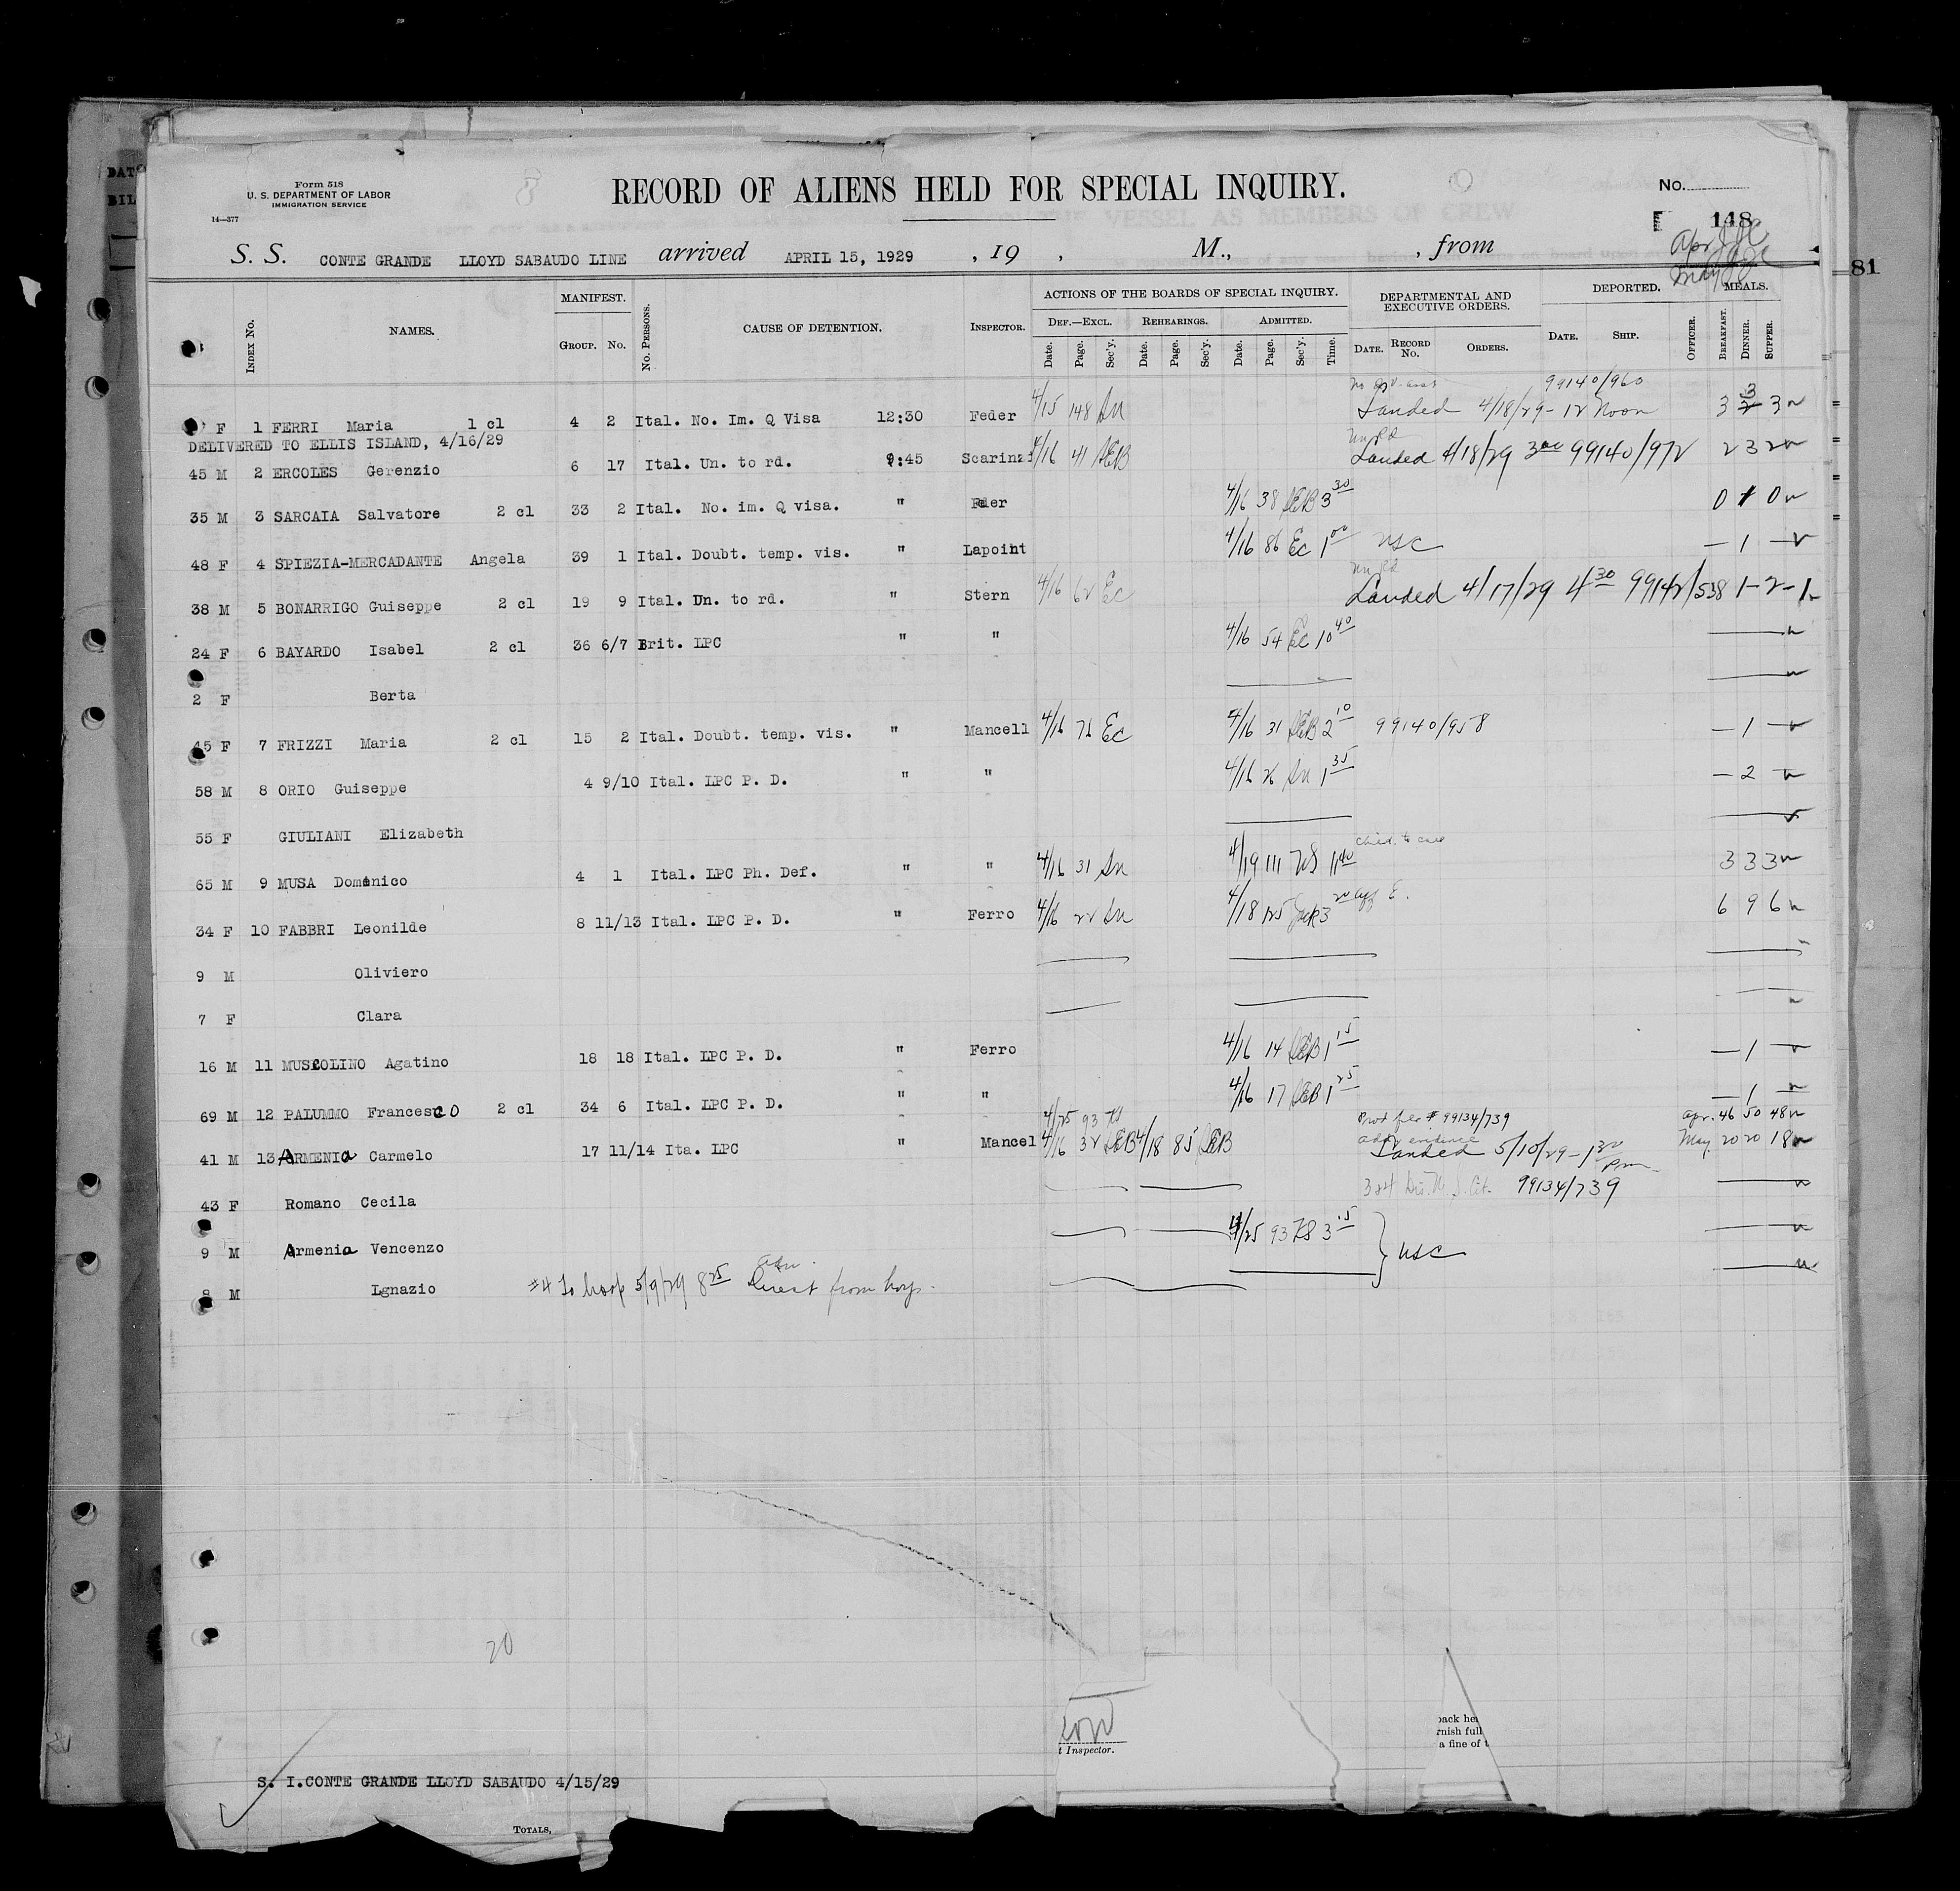 Form 518
U. S. DEPARTMENT OF LABOR
IMMIGRATION SERVICE
14—377
RECORD OF ALIENS HELD FOR SPECIAL INQUIRY.
No.
148
S. S. CONTE GRANDE LLOYD SABAUDO LINE arrived APRIL 15, 1929 , 19 , M., , from
81
INDEX No. NAMES. MANIFEST. GROUP. No. No. PERSONS. CAUSE OF DETENTION. INSPECTOR. ACTIONS OF THE BOARDS OF SPECIAL INQUIRY. DEF.—EXCL. REHEARINGS. ADMITTED. Date. Page. Sec'y. Date. Page. Sec'y. Date. Page. Sec'y. Time. DEPARTMENTAL AND EXECUTIVE ORDERS. DATE. RECORD No. ORDERS. DEPORTED. DATE. SHIP. OFFICER. MEALS. BREAKFAST. DINNER. SUPPER.
99140/960
F 1 FERRI Maria 1 cl 4 2 Ital. No. Im. Q Visa 12:30 Feder 4/15 148 Landed 4/18/29 - 12 Noon 3 3 3
DELIVERED TO ELLIS ISLAND, 4/16/29
45 M 2 ERCOLES Gerenzio 6 17 Ital. Un. to rd. 9:45 Scarinzi 4/16 41 AEB Landed 4/18/29 3 00 99140/972 2 3 2
35 M 3 SARCAIA Salvatore 2 cl 33 2 Ital. No. im. Q visa. " Feder 4/16 38 AEB 3 30 0 1 0
48 F 4 SPIEZIA-MERCADANTE Angela 39 1 Ital. Doubt. temp. vis. " Lapoint 4/16 86 Ec 1 00 USC — 1 —
38 M 5 BONARRIGO Guiseppe 2 cl 19 9 Ital. Un. to rd. " Stern 4/16 62 Ec Landed 4/17/29 4 30 99142/538 1-2-1
24 F 6 BAYARDO Isabel 2 cl 36 6/7 Brit. LPC " " 4/16 54 Ec 10 40
2 F Berta
45 F 7 FRIZZI Maria 2 cl 15 2 Ital. Doubt. temp. vis. " Mancell 4/16 71 Ec 4/16 31 AEB 2 10 99140/958 — 1 —
58 M 8 ORIO Guiseppe 4 9/10 Ital. LPC P. D. " " 4/16 26 1 35 — 2 —
55 F GIULIANI Elizabeth
65 M 9 MUSA Domenico 4 1 Ital. LPC Ph. Def. " " 4/16 31 4/19 111 11 40 3 3 3
34 F 10 FABBRI Leonilde 8 11/13 Ital. LPC P. D. " Ferro 4/16 22 4/18 125 3 20 6 9 6
9 M Oliviero
7 F Clara
16 M 11 MUSCOLINO Agatino 18 18 Ital. LPC P. D. " Ferro 4/16 14 AEB 1 15 — 1 —
69 M 12 PALUMMO Francesco 2 cl 34 6 Ital. LPC P. D. " " 4/16 17 AEB 1 25 — 1 —
4/25 93 99134/739 Apr. 46 50 48
41 M 13 ARMENIA Carmelo 17 11/14 Ita. LPC " Mancel 4/16 32 AEB 4/18 85 AEB Landed 5/10/29 - 1 30 Pm May 20 20 18
43 F Romano Cecila 99134/739
9 M Armenia Vencenzo 4/25 93 3 15 USC
8 M Lgnazio #4 To hosp 5/9/29 8 25 from hosp.
20
back he
rnish full
a fine of t
t Inspector.
S. I. CONTE GRANDE LLOYD SABAUDO 4/15/29
TOTALS,